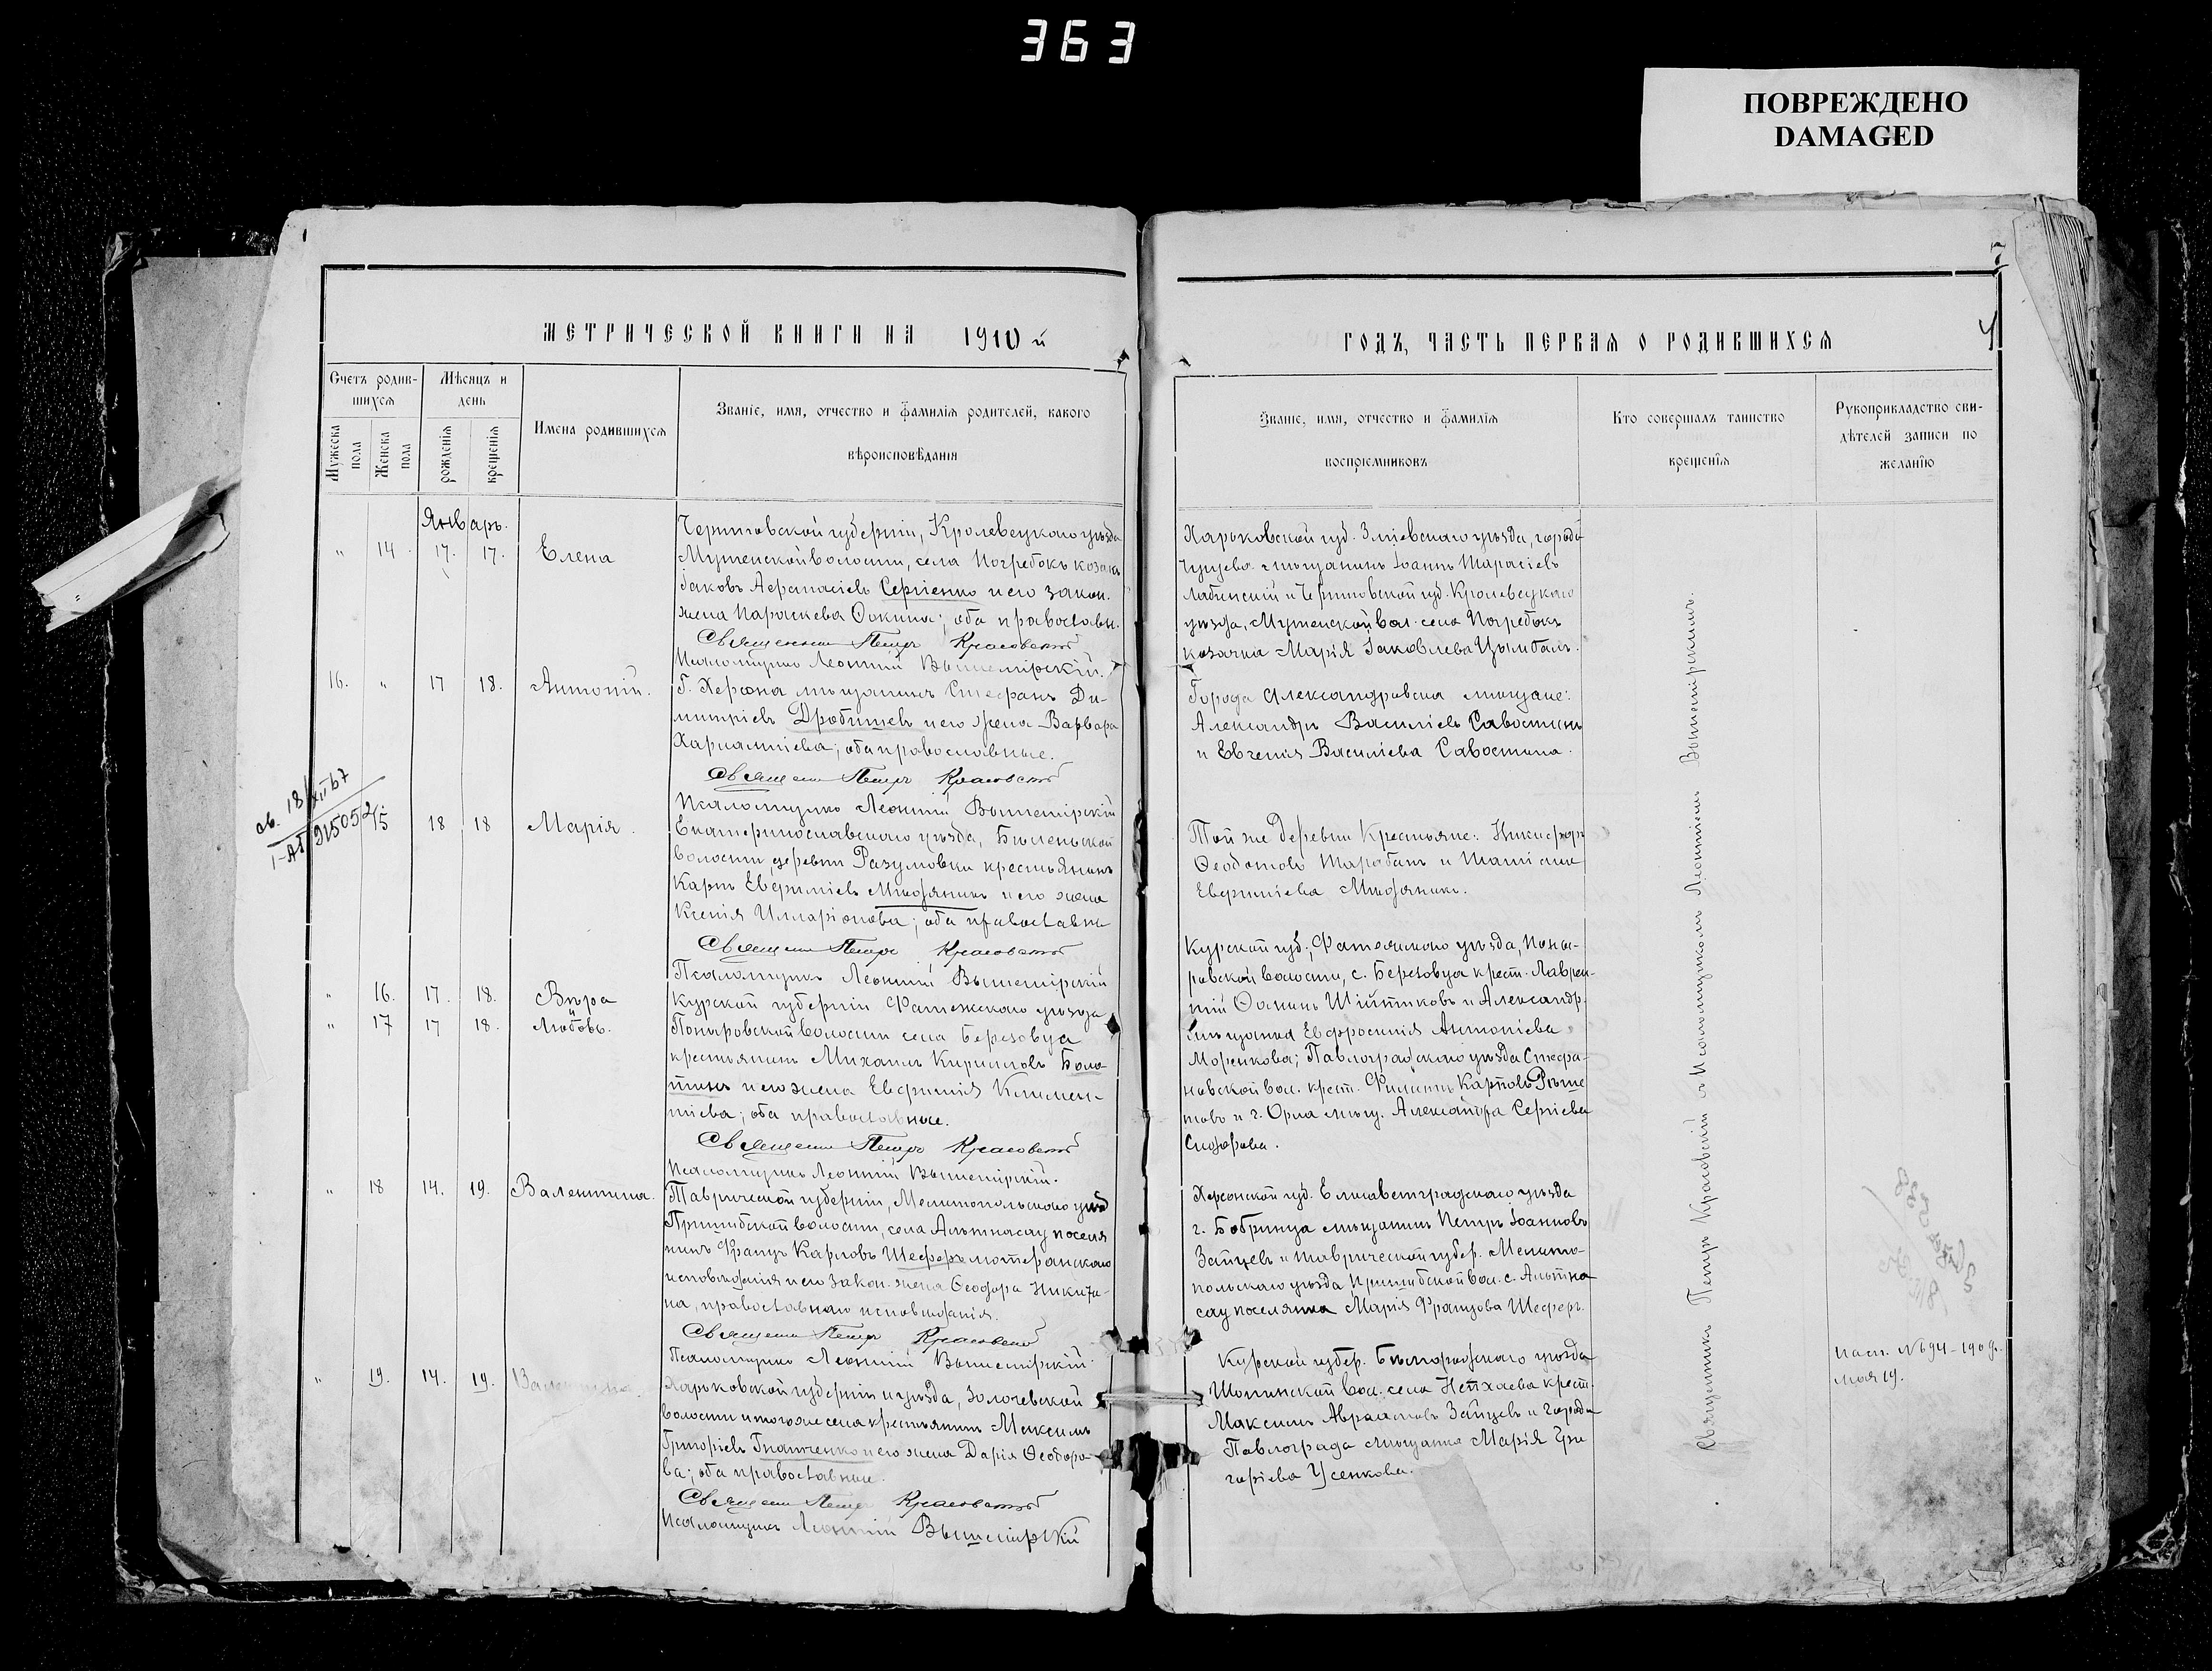 363
ПОВРЕЖДЕНО
DAMAGED
7
МЕТРИЧЕСКОЙ КНИГИ НА 1910 й
ГОДЪ, ЧАСТЬ ПЕРВАЯ О РОДИВШИХСЯ
4
Счетъ родив-
шихся
Мѣсяцъ и
день
Мужеска
пола
Женска
пола
рожденія
крещенія
Имена родившихся
Званіе, имя, отчество и фамилія родителей, какого
вѣроисповѣданія
Званіе, имя, отчество и фамилія
воспріемниковъ
Кто совершалъ таинство
крещенія
Рукоприкладство сви-
дѣтелей записи по
желанію
Январь.
" 14. 17. 17. Елена
Черниговской губерніи, Кролевецкаго уѣзда
Мутенской волости, села Погребокъ козакъ
Аѳанасіевъ Сергіенко и его закон.
жена Параскева Фокина; оба православн.
Священникъ Петръ Красовскій
Псаломщикъ Леонтій Вышемірскій.
Харьковской губ. Зміевскаго уѣзда, города
Чугуева мѣщанинъ Іоаннъ Тарасіевъ
Лабинскій и Черниговской губ. Кролевецкаго
уѣзда, Мутенской вол. села Погребокъ
козачка Марія Іаковлева Цымбалъ.
16. " 17 18. Антоній.
Г. Херсона мѣщанинъ Стефанъ Ди-
митріевъ Дробишевъ и его жена Варвара
Харлампіева; оба православные.
Священн Петръ Красовскій
Псаломщикъ Леонтій Вышемірскій
Города Александровска мѣщане:
Александръ Василіевъ Савостинъ
и Евгенія Василіева Савостина.
св. 18/XII 67
1-АБ 915052
15 18 18 Марія.
Екатеринославскаго уѣзда, Бѣленьской
волости, деревни Разумовки крестьянинъ
Карпъ Евѳиміевъ и его жена
Ксенія Илларіонова; оба православн
Священн Петръ Красовскій
Псаломщикъ Леонтій Вышемірскій
Той же деревни крестьяне: Никифоръ
Ѳеодотовъ Тарабанъ и Татіана
Евѳиміева
" 16. 17. 18. Вѣра
и
" 17 17 18. Любовь.
Курской губерніи Фатежскаго уѣзда
Поныровской волости села Березовца
крестьянинъ Михаилъ Кирилловъ Боло-
тинъ и его жена Евѳимія Климен-
тіева; оба православные.
Священн Петръ Красовскій
Псаломщикъ Леонтій Вышемірскій.
Курской губ., Фатежскаго уѣзда, Поны-
ровской волости, с. Березовца крест. Лаврен-
тій Ѳоминъ и Александр.
мѣщанка Евфросинія Антоніева
Моренкова; Павлоградскаго уѣзда Стефа-
новской вол. крест. Филиппъ Карповъ Рѣше
товъ и г. Орла мѣщ. Александра Сергіева
Сидорова.
" 18 14. 19. Валентина.
Таврической губерніи, Мелитопольскаго уѣзд
Пришибской волости, села Альтнасау поселя
нинъ Францъ Карловъ Шеферъ лютеранскаго
исповѣданія и его закон. жена Ѳеодора Никити-
на, православнаго исповѣданія.
Священн Петръ Красовскій
Псаломщикъ Леонтій Вышемірскій.
Херсонской губ. Елисаветградскаго уѣзда
г. Бобринца мѣщанинъ Петръ Іоанновъ
Зайцевъ и Таврической губер. Мелито-
польскаго уѣзда Пришибской вол. с. Альтна
сау поселянка Марія Францова Шеферъ.
" 19. 14. 19. Валентина.
Харьковской губерніи и уѣзда, Золочевской
волости и того же села крестьянинъ Максимъ
Григоріевъ Гнатченко и его жена Дарія Ѳеодоро-
ва; оба православные.
Священн Петръ Красовскій
Псаломщикъ Леонтій Вышемірскій
Курской губер. Бѣлгородскаго уѣзда
Шопинской вол. села Непхаева крест.
Максимъ Авраамовъ Зайцевъ и города
Павлограда мѣщанка Марія Гри
горіева Усенкова.
Священникъ Петръ Красовскій съ Псаломщикомъ Леонтіемъ Вышемірскимъ.
пасп. № 694 - 190
мая 19.